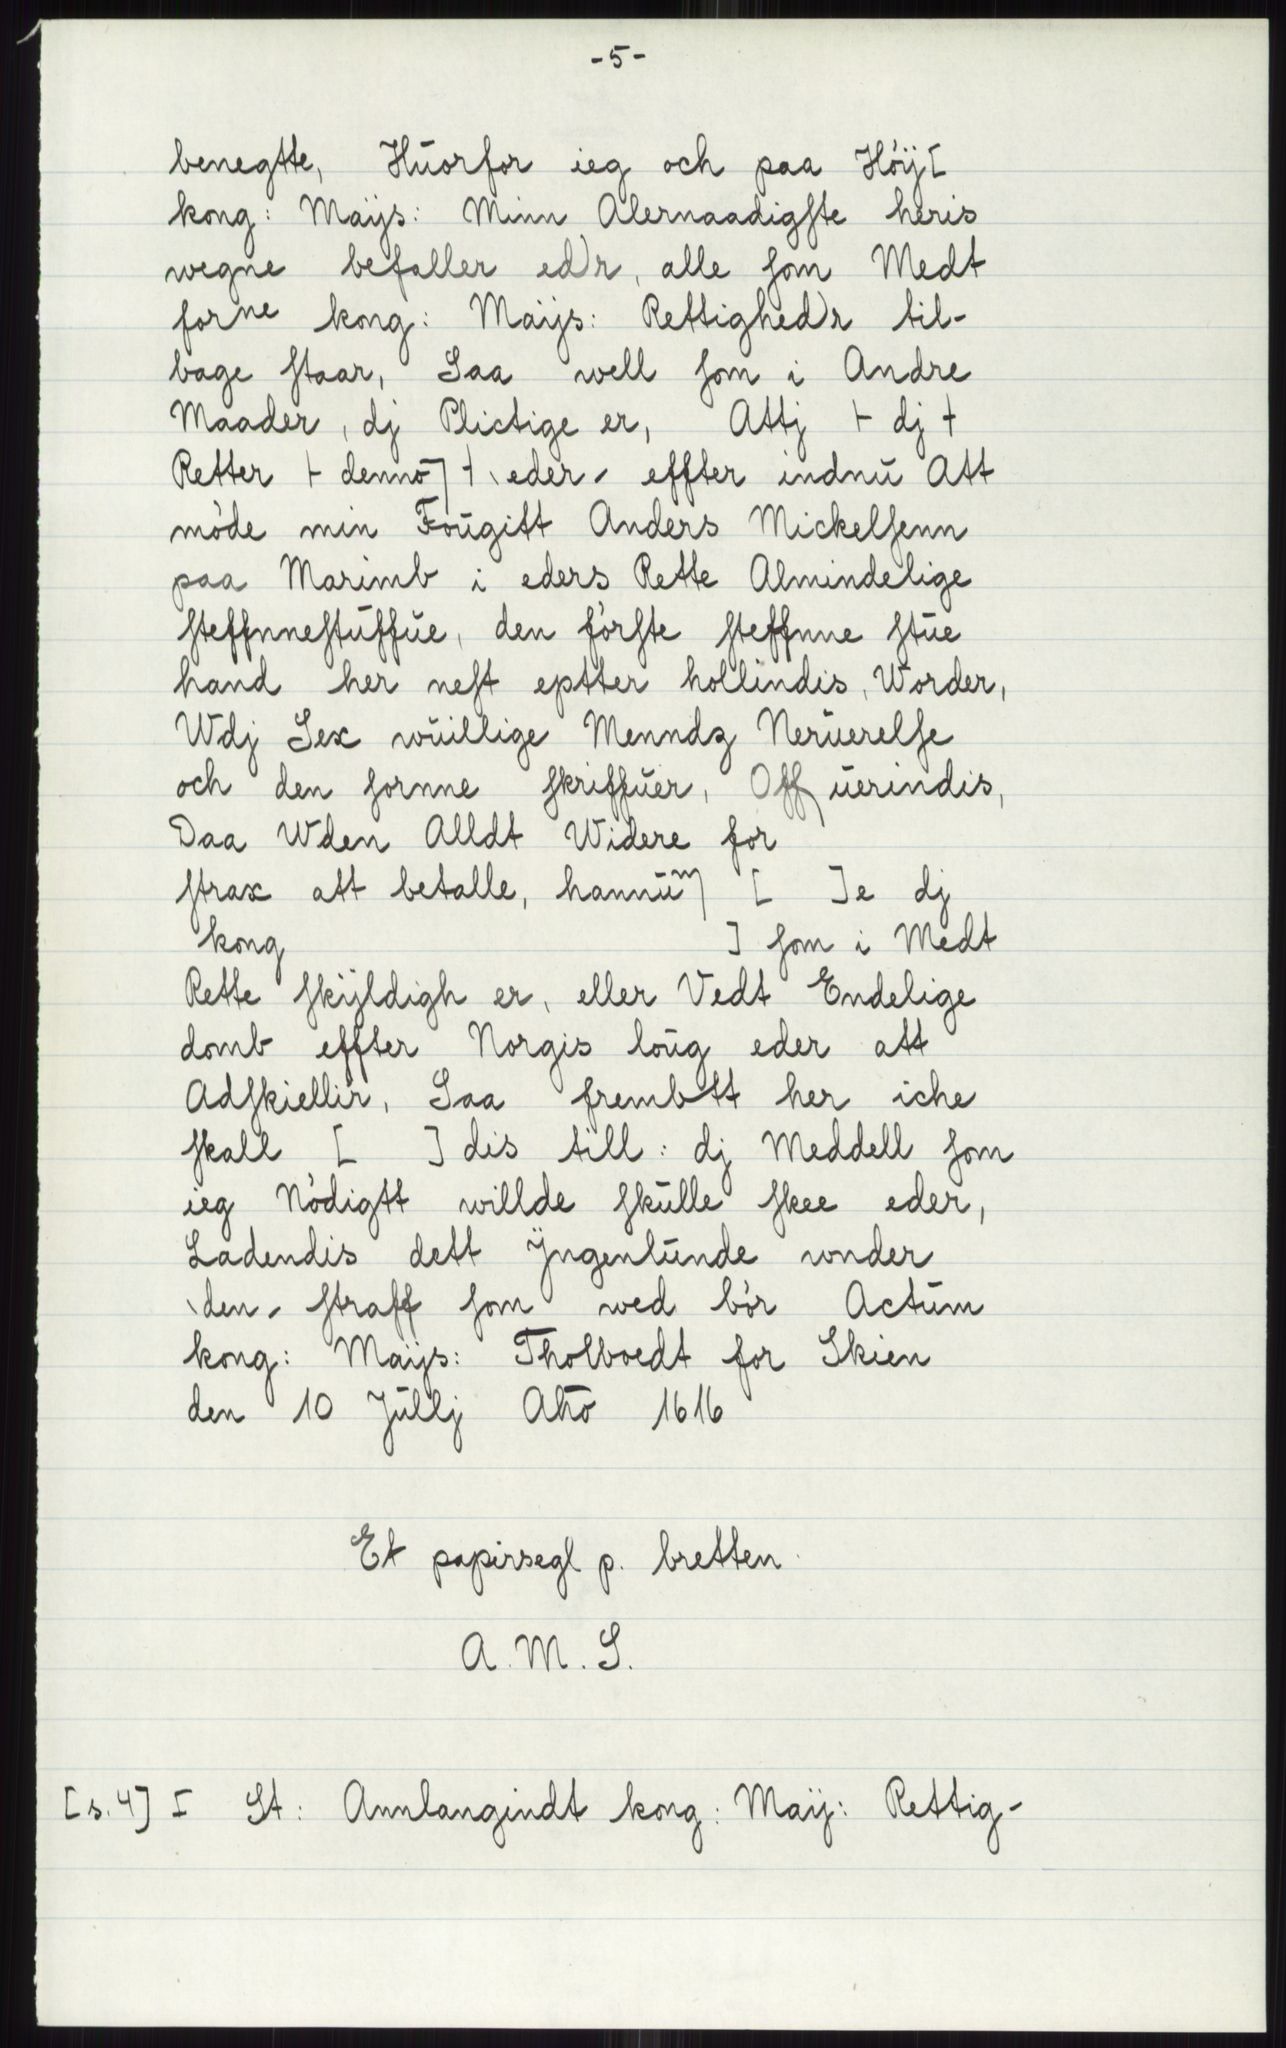 -5-
benegtte, Huorfor ieg och paa Höÿ[
kong: Maijs: Minn Alernaadigste heris
wegne befaller ed)r, alle som Medt
forne kong: Maijs: Rettighed)r til-
bage staar, Saa well som i Andre
Maader, dj Plictige er, Attj ⊢ dj ⊣
Retter ⊢ denno] ⊣ \eder/ effter indnu Att
möde min Fougitt Anders Mickelsenn
paa Marimb i eders Rette Almindelige
steffnnestuffue, den förste steffnne stue
hand her nest eptter hollindis, Worder,
Wdj Sex wuillige Menndz Neruerelse
och den sornne skriffuer, Off uerindis,
Daa Wden Alldt Widere for
strax att betalle, hannum [ ]e dj
kong ] som i Medt
Rette skÿldigh er, eller Vedt Endelige
domb effter Norgis loug eder att
Adskiellir, Saa frembtt her iche
skall [ ] dis till: dj Meddell som
ieg Nödigtt willde skulle skee eder,
Ladendis dett Jngenlunde wnder
\den/ straff som wed bör Actum
kong: Maijs: Tholboedt for Skien
den 10 Jullj Ano 1616
Et papirsegl p. bretten.
A. M. S.
[s. 4] I St: Annlangindt kong: Maij: Rettig-